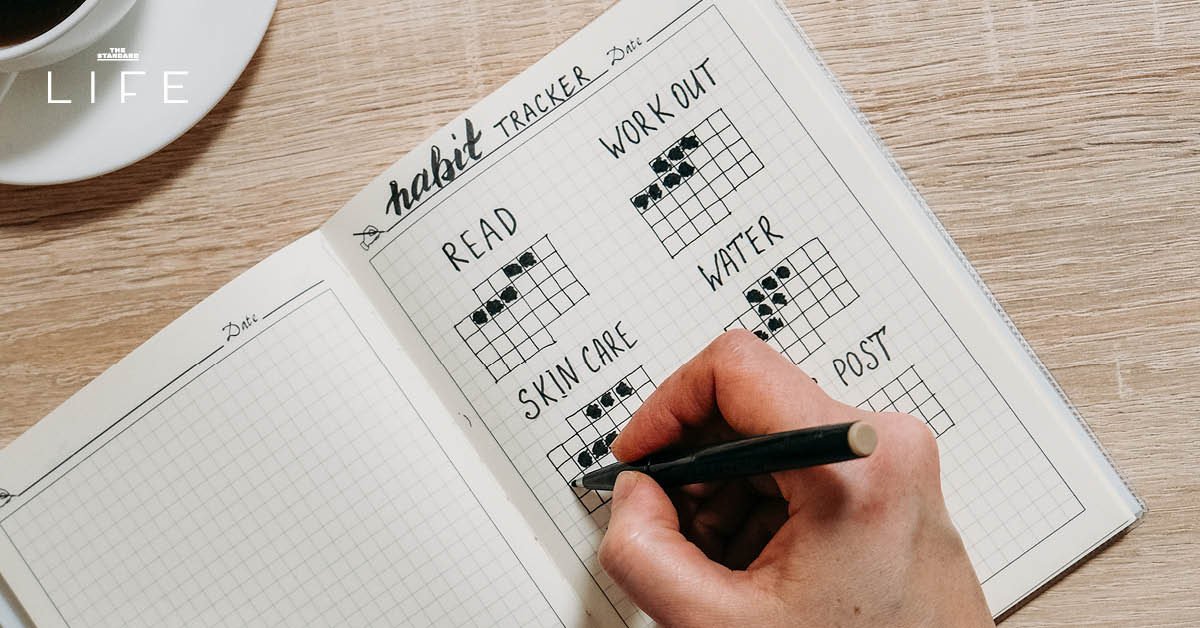 THE
STANDARD
LIFE
habit TRACKER Date
READ
WORK OUT
SKIN CARE
WATER
POST
Date